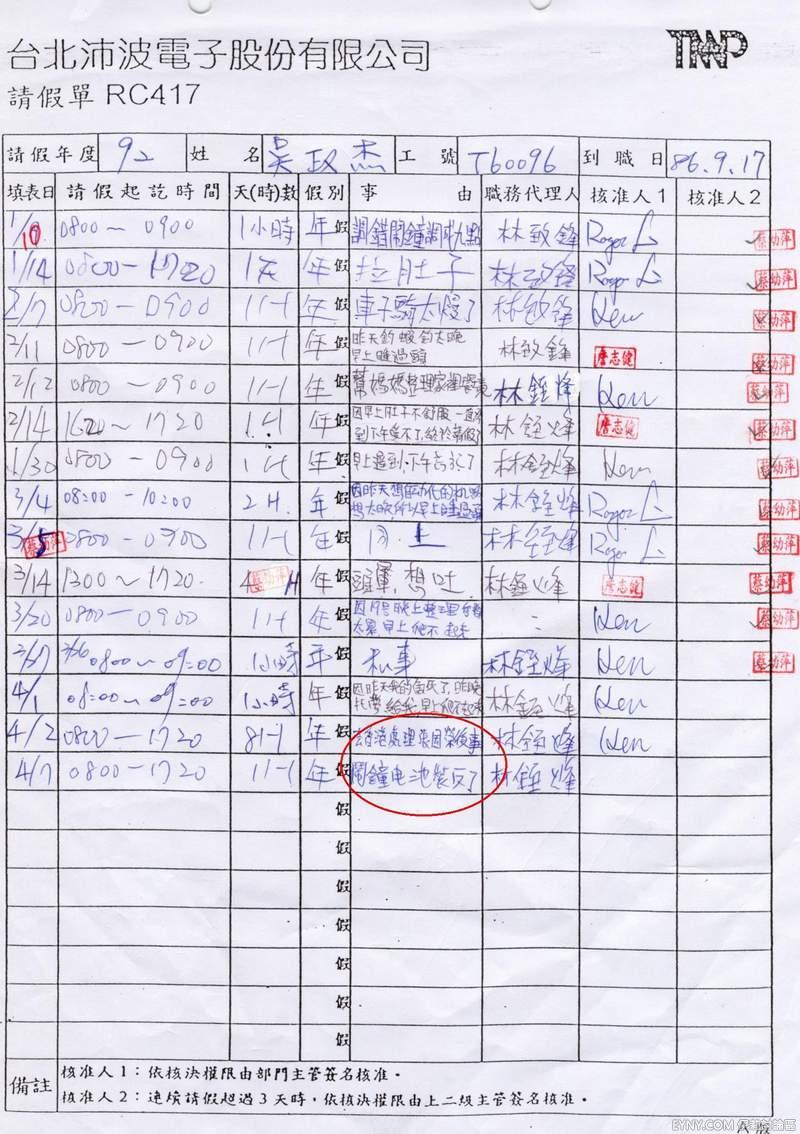 台北沛波電子股份有限公司
請假單 RC417
請假年度 92 姓名 吳政杰 工號 T60096 到職日 86.9.17
填表日 請假起訖時間 天(時)數 假別 事由 職務代理人 核准人1 核准人2
1/10 0800~0900 1小時 年假 調錯鬧鐘調成九點 林致鋒 蔡幼萍
1/14 0800-1720 1天 年假 拉肚子 林致鋒 蔡幼萍
2/7 0800-0900 1H 年假 車子騎太慢了 林致鋒 Ken 蔡幼萍
2/11 0800-0900 1H 年假 昨天釣蝦釣太晚
早上睡過頭 林致鋒 詹志健 蔡幼萍
2/12 0800-0900 1H 年假 幫媽媽整理家裡 林鉦烽 Ken 蔡幼萍
2/14 1620-1720 1H 年假 因早上肚子不舒服一直
到下午 林鉦烽 詹志健 蔡幼萍
1/30 0800-0900 1H 年假 早上遲到,下午 林鉦烽 Ken 蔡幼萍
3/4 08:00-10:00 2H 年假 因昨天想
想太晚所以早上睡過頭 林鉦烽 蔡幼萍
3/5 蔡幼萍 0800-0900 1H 年假 同上 林鉦烽 蔡幼萍
3/14 1300~1720. 4 蔡幼萍 H 年假 頭暈,想吐 林鉦烽 詹志健 蔡幼萍
3/20 0800-0900 1H 年假 晚上整理
太累早上爬不起來 Ken 蔡幼萍
3/27 3/26 0800~09:00 1小時 年假 私事 林鉦烽 Ken 蔡幼萍
4/1 08:00~09:00 1小時 年假 因昨天我的魚死了,昨晚
托夢給我,早上爬不起來 林鉦烽 Ken
4/2 0800-1720 8H 年假 去香港處理張國榮後事 林鉦烽 Ken
4/7 0800-1720 1H 年假 鬧鐘电池裝反了 林鉦烽
假
假
假
假
假
假
假
備註 核准人1:依核決權限由部門主管簽名核准。
核准人2:連續請假超過3天時,依核決權限由上二級主管簽名核准。
A版